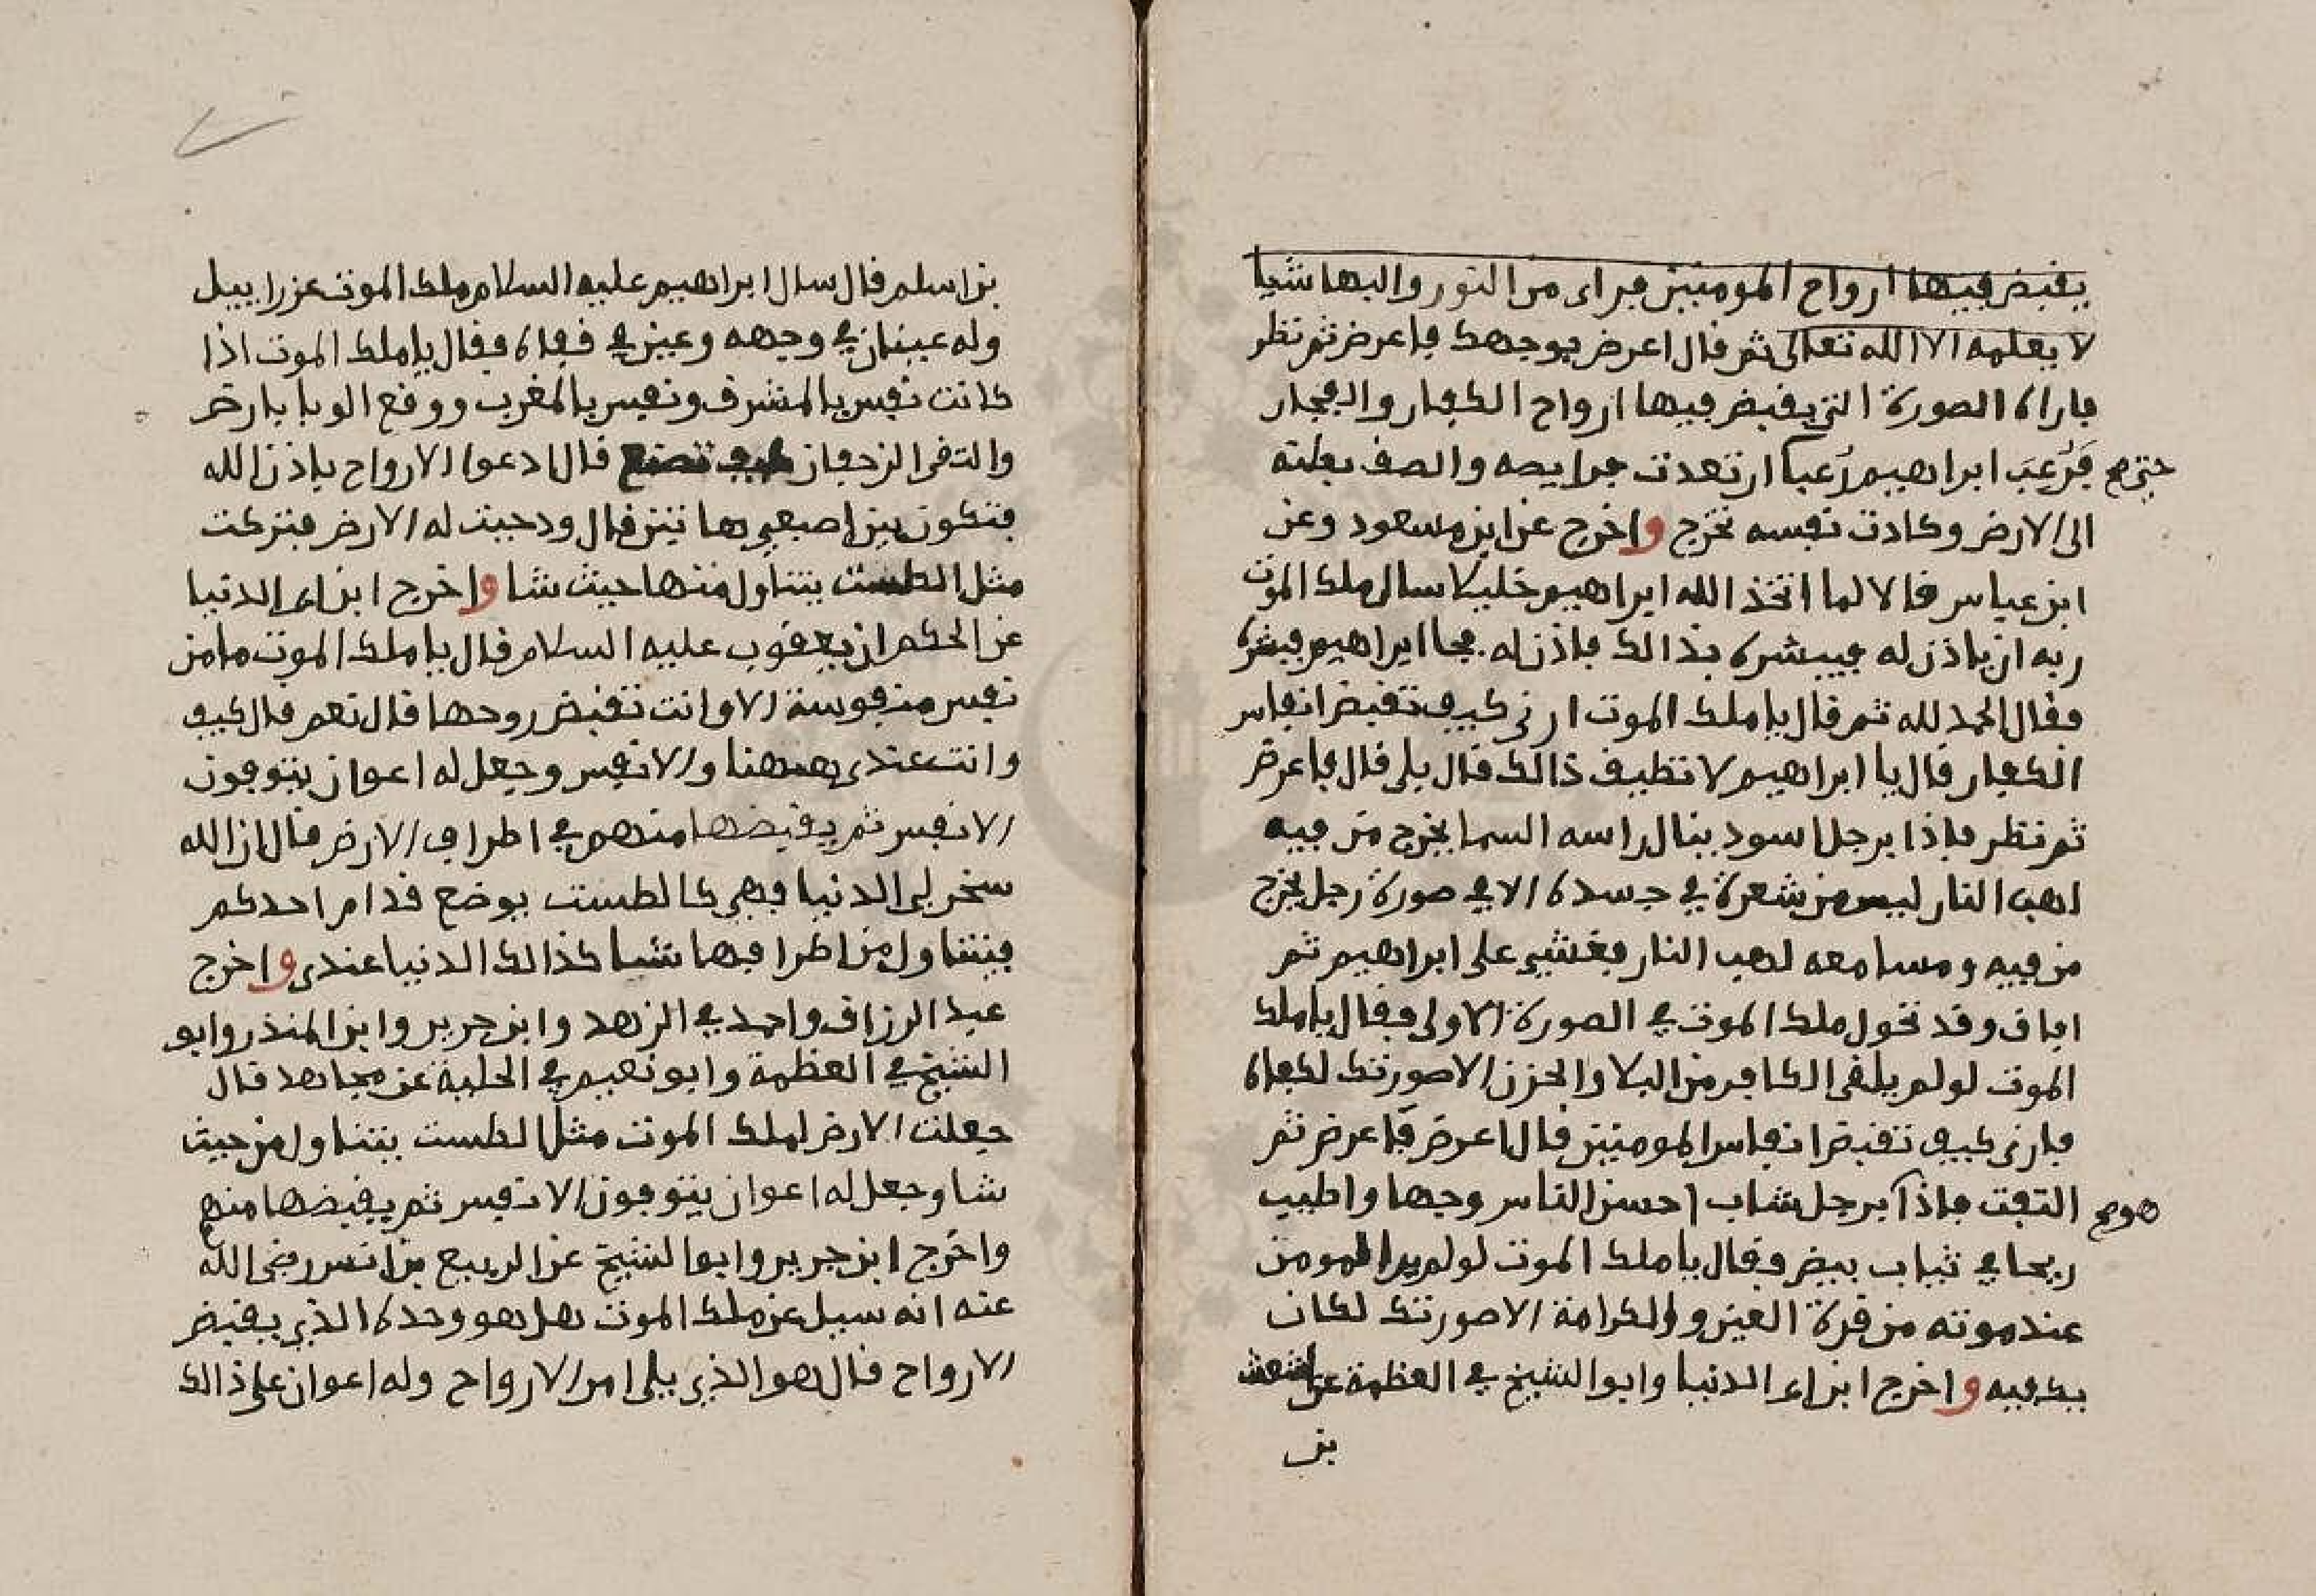 يقبض فيها ارواح المومنين فراى من النور والبها شيا
لا يعلمه الا الله تعالى ثم قال اعرض بوجهك فاعرض ثم نظر
فاراه الصورة التي يقبض فيها ارواح الكفار والفجار
فرعب ابراهيم رعبا ارتعدت فرايصه والصف بطنه
حتى صح
الى الارض وكادت نفسه تخرج واخرج عن ابن مسعود وعن
ابن عباس قالا لما اتخذ الله ابراهيم خليلا سال ملك الموت
ربه ان ياذن له فيبشره بذالك فاذن له فجا ابراهيم فبشره
فقال الحمد لله ثم قال يا ملك الموت ارني كيف تقبض انفاس
الكفار قال يا ابراهيم لا تطيف ذالك قال بلى قال فاعرض
ثم نظر فاذا برجل اسود ينال راسه السما يخرج من فيه
لهب النار ليس من شعرة في جسده الا في صورة رجل يخرج
من فيه ومسامعه لهب النار فغشي على ابراهيم ثم
افاق وقد تحول ملك الموت في الصورة الاولى فقال يا ملك
الموت لو لم يلقى الكافر من البلا والحزن الا صورتك لكفاه
فارني كيف تقبض انفاس المومنين قال اعرض فاعرض ثم
التفت فاذا برجل شاب احسن الناس وجها واطيب
هو صح
ريحا في ثياب بيض فقال يا ملك الموت لو لم ير المومن
عند موته من قرة العين والكرامة الا صورتك لكان
يكفيه واخرج ابن ابي الدنيا وابو الشيخ في العظمة عن اشعث
بن
بن اسلم قال سال ابراهيم عليه السلام ملك الموت عزراييل
وله عينان في وجهه وعين في قفاه فقال يا ملك الموت اذا
كانت نفس بالمشرق ونفس بالمغرب ووقع الوبا بارض
والتقى الزحفان كيف تصنع قال ادعوا الارواح باذن الله
فتكون بين اصبعي هاتين قال ودحيت له الارض فتركت
مثل الطست يتناول منها حيث شا واخرج ابن ابي الدنيا
عن الحكم ان يعقوب عليه السلام قال يا ملك الموت ما من
نفس منفوسة الا وانت تقبض روحها قال نعم قال كيف
وانت عندي ههنا والانفس وجعل له اعوان يتوفون
الانفس ثم يقبضها منهم في اطراف الارض قال ان الله
سخر لي الدنيا فهي كالطست يوضع قدام احدكم
فيتناول من اطرافها شيا كذالك الدنيا عندي واخرج
عبد الرزاق واحمد في الزهد وابن جرير وابن المنذر وابو
الشيخ في العظمة وابو نعيم في الحلية عن مجاهد قال
جعلت الارض لملك الموت مثل الطست يتناول من حيث
شا وجعل له اعوان يتوفون الانفس ثم يقبضها منهم
واخرج ابن جرير وابو الشيخ عن الربيع بن انس رضي الله
عنه انه سيل عن ملك الموت هل هو وحده الذي يقبض
الارواح قال هو الذي يلي امر الارواح وله اعوان على ذالك